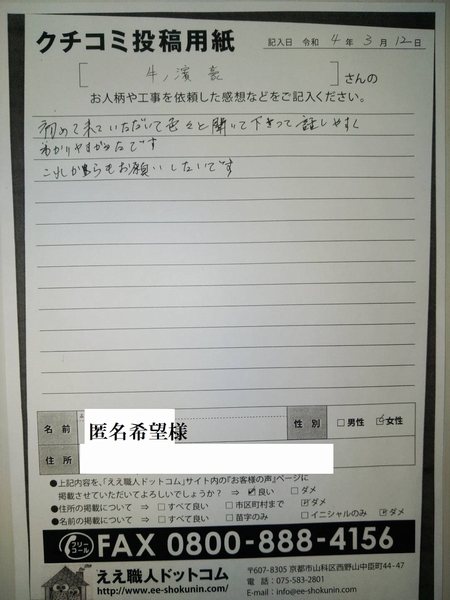 クチコミ投稿用紙
記入日 令和 4 年 3 月 12 日
[ 牛ノ濱 豪 ] さんの
お人柄や工事を依頼した感想などをご記入ください。
初めて来ていただいて色々と聞いて下さって話しやすく
わかりやすかったです
これからもお願いしたいです
名前 匿名希望様 性別 □男性 ☑女性
住所
●上記内容を、「ええ職人ドットコム」サイト内の『お客様の声』ページに
掲載させていただいてよろしいでしょうか? ⇒ ☑良い □ダメ
●住所の掲載について ⇒ □すべて良い □市区町村まで ☑ダメ
●名前の掲載について ⇒ □すべて良い □苗字のみ □イニシャルのみ ☑ダメ
フリーコール FAX 0800-888-4156
ええ職人ドットコム
http://www.ee-shokunin.com/
〒607-8305 京都市山科区西野山中臣町44-47
電話：075-583-2801
E-mail：info@ee-shokunin.com